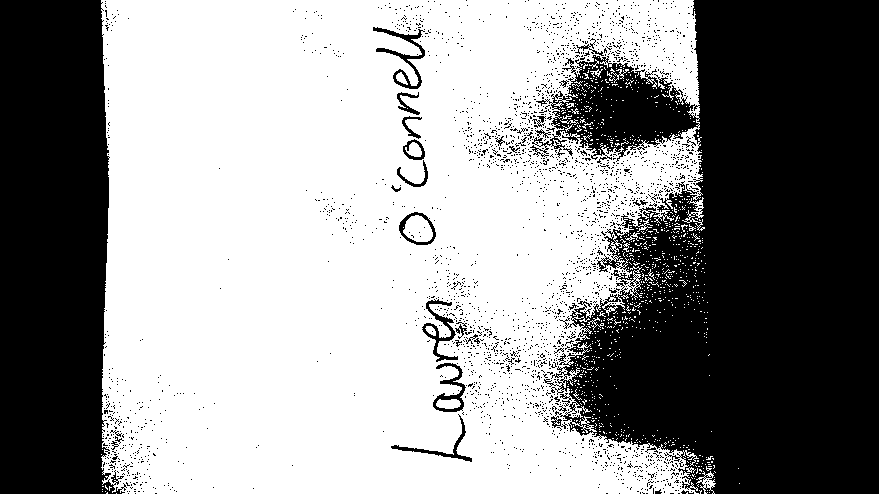 Lauren O'Connell